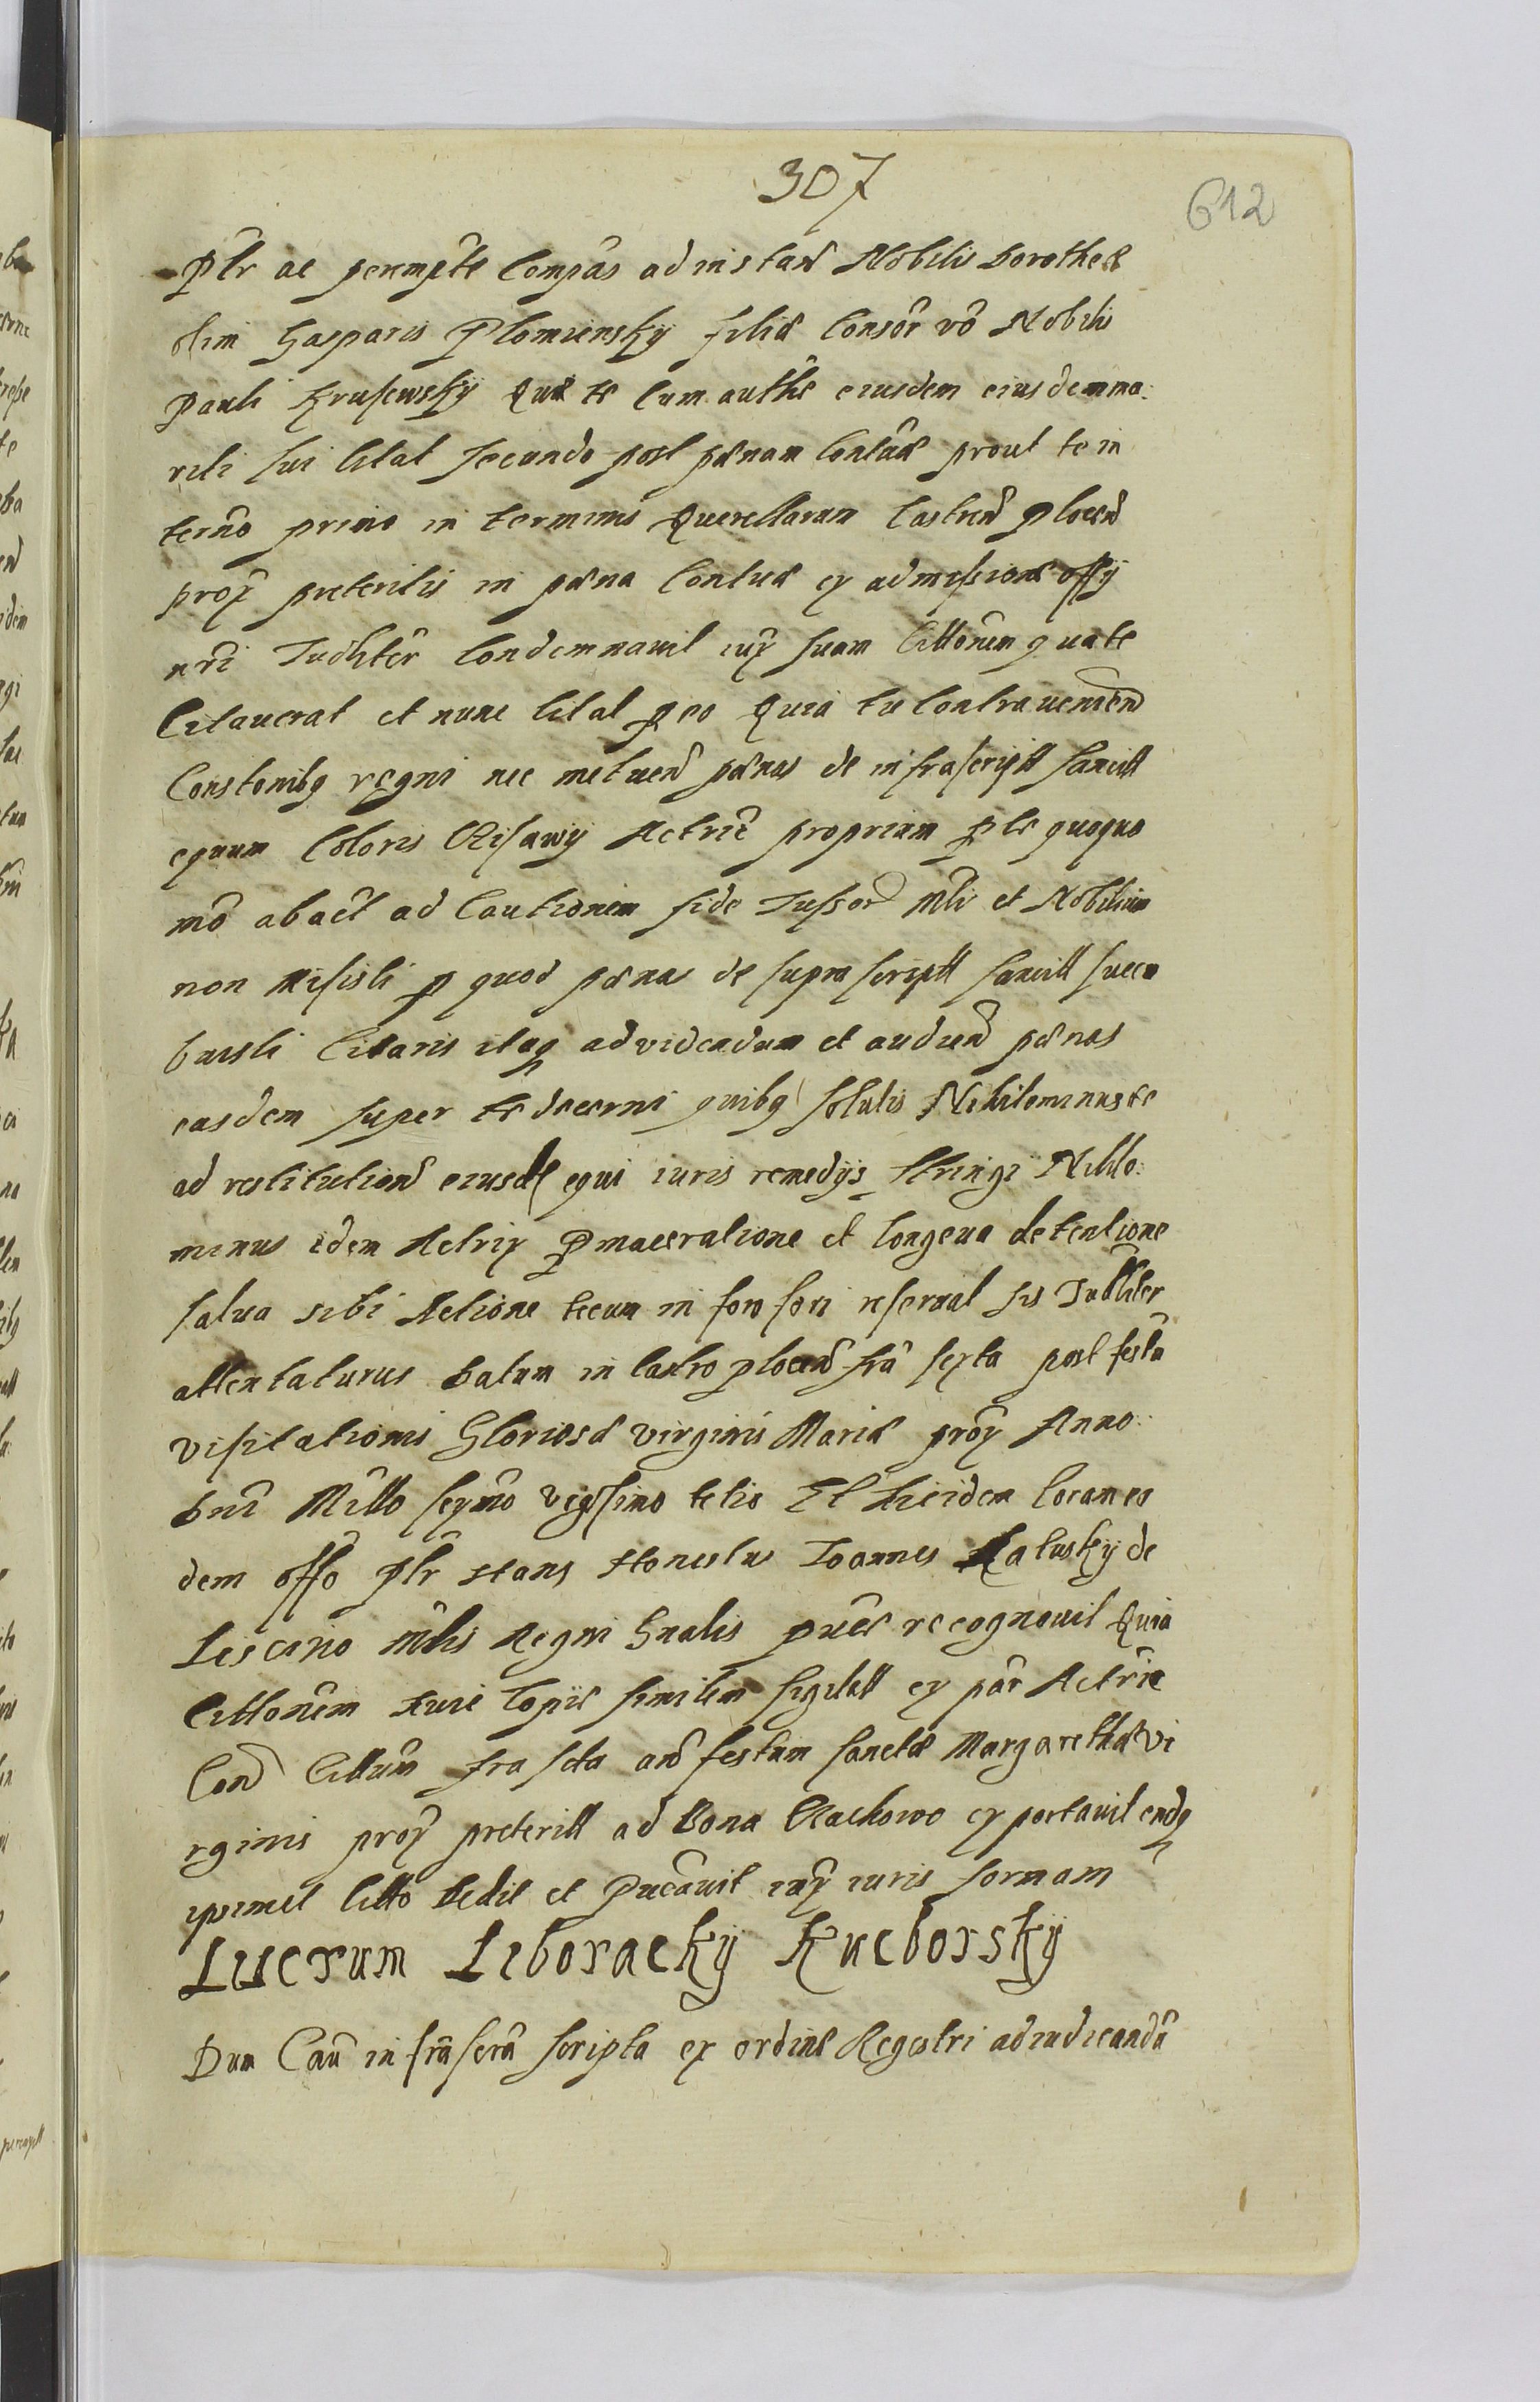 307
612
Plr ac perempte Compas ad instan Nobilis Dorotheæ
olim Gasparis Plomiensky filiæ Consor vo Nobilis
Pauli Krusewsky Quæ te Cum authe eiusdem eiusdem ma:
riti sui Citat secundo post pænam Contuæ prout te in
termo primo in terminis Querellarum Castren plocen
prox preteritis in pæna Contuæ ex admissione offy
nri Iudliter Condemnauit iux suam Cittonem qua te
Citauerat et nunc Citat p eo Quia tu Contraueniен
Constonibq regni nec metuen pænas de infrascriptt sancitt
equum Coloris Cisawy Actric propriam p te quoquo
mo abact ad Cautionem fide Iussor Mli et Nobilium
non misisti p quod pænas de suprascriptt sancitt succu
buisti Citaris itaq ad videndum et audien pænas
easdem super te decerni quibq solutis Nihilominus te
ad restitution eiusde equi iuris remedys stringi Nihilo:
minus idem Actrix P maceratione et Longeua detentione
salua sibi Actione tecum in foro fori reseruat se Iudliter
attentaturus Datum in Castro plocen fra sexta post festu
Visitationis Gloriosæ Virginis Mariæ prox Anno
Dni Millo sexmo Vigesimo tetio Et hicidem Coram eo
dem offo Plr stans Honestus Ioannes Katusky de
Liscino mlis Regni Gnalis puæ recognouit Quia
Cittonem huic Copiæ similem sigilatt ex par Actric
Con Cittum fra scta an festum sanctæ Margarethæ Vi
rginis prox preteritt ad Bona Rachowo exportauit endq
ipsimet Citto dedit et Pucauit iux iuris formam
Lucrum Liboracky Kucborsky
Dum Cau infrascra scripta ex ordine Regestri adiudicandu